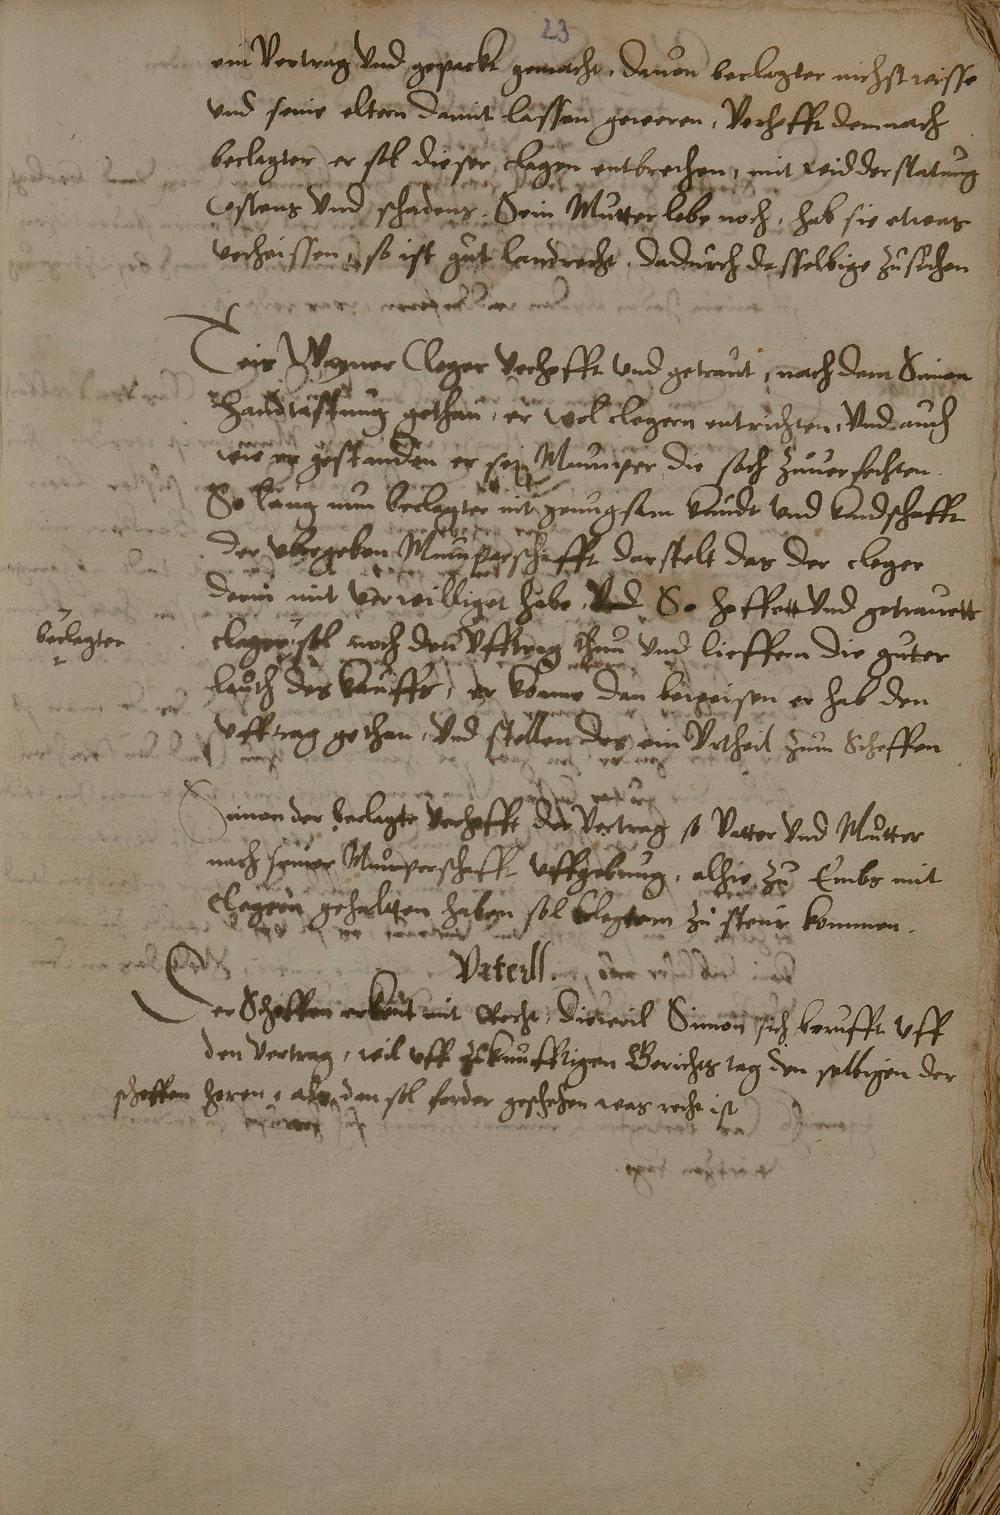 23
ein Vertrag vnd gepackt gemacht, dauon beclagter nichst wisse
vnd seine eltern damit lassen geweren, Verhofft demnach
beclagter er sol dieser clagen entbrechen, mit widderstatung
Costens vnd schadens. Sein Mutter lebe noch, hab sie etwas
verheissen, so ist gut landrecht, dadurch dasselbige zusuchen
Wagner Cleger verhofft vnd getraut, nach dem Simon
handtastung gethan, er wol clegern entrichten, Vnd auch
wie er gestanden er sey Mumper die sach zuuerfechten.
So lang nun beclagter nit gnungsam kundt vnd kundschafft
der vbergeben Mumperschafft darstelt das der cleger
darin mit verwilliget habe, So hoffett vnd getrauett
beclagter
cleger sol noch den vfftrag thun vnd lieffern die guter
lauth des kauffs, er konne dan beweisen er hab den
vfftrag gethan, Vnd stellen des ein Vrtheil zum Scheffen
Simon der beclagte verhofft der Vertrag so Vatter vnd Mutter
nach seiner Mumperschafft vffgebung, alhie zu Embs mit
Clegern gehalten haben sol clegern zu steur kommen.
Vrteill.
Der Scheffen erkent mit Recht, dieweil Simon sich berufft vff
den vertrag, wil vff zukunfftigen Gerichtstag den selbigen der
scheffen horen, als dan sol ferder geschehen was recht ist